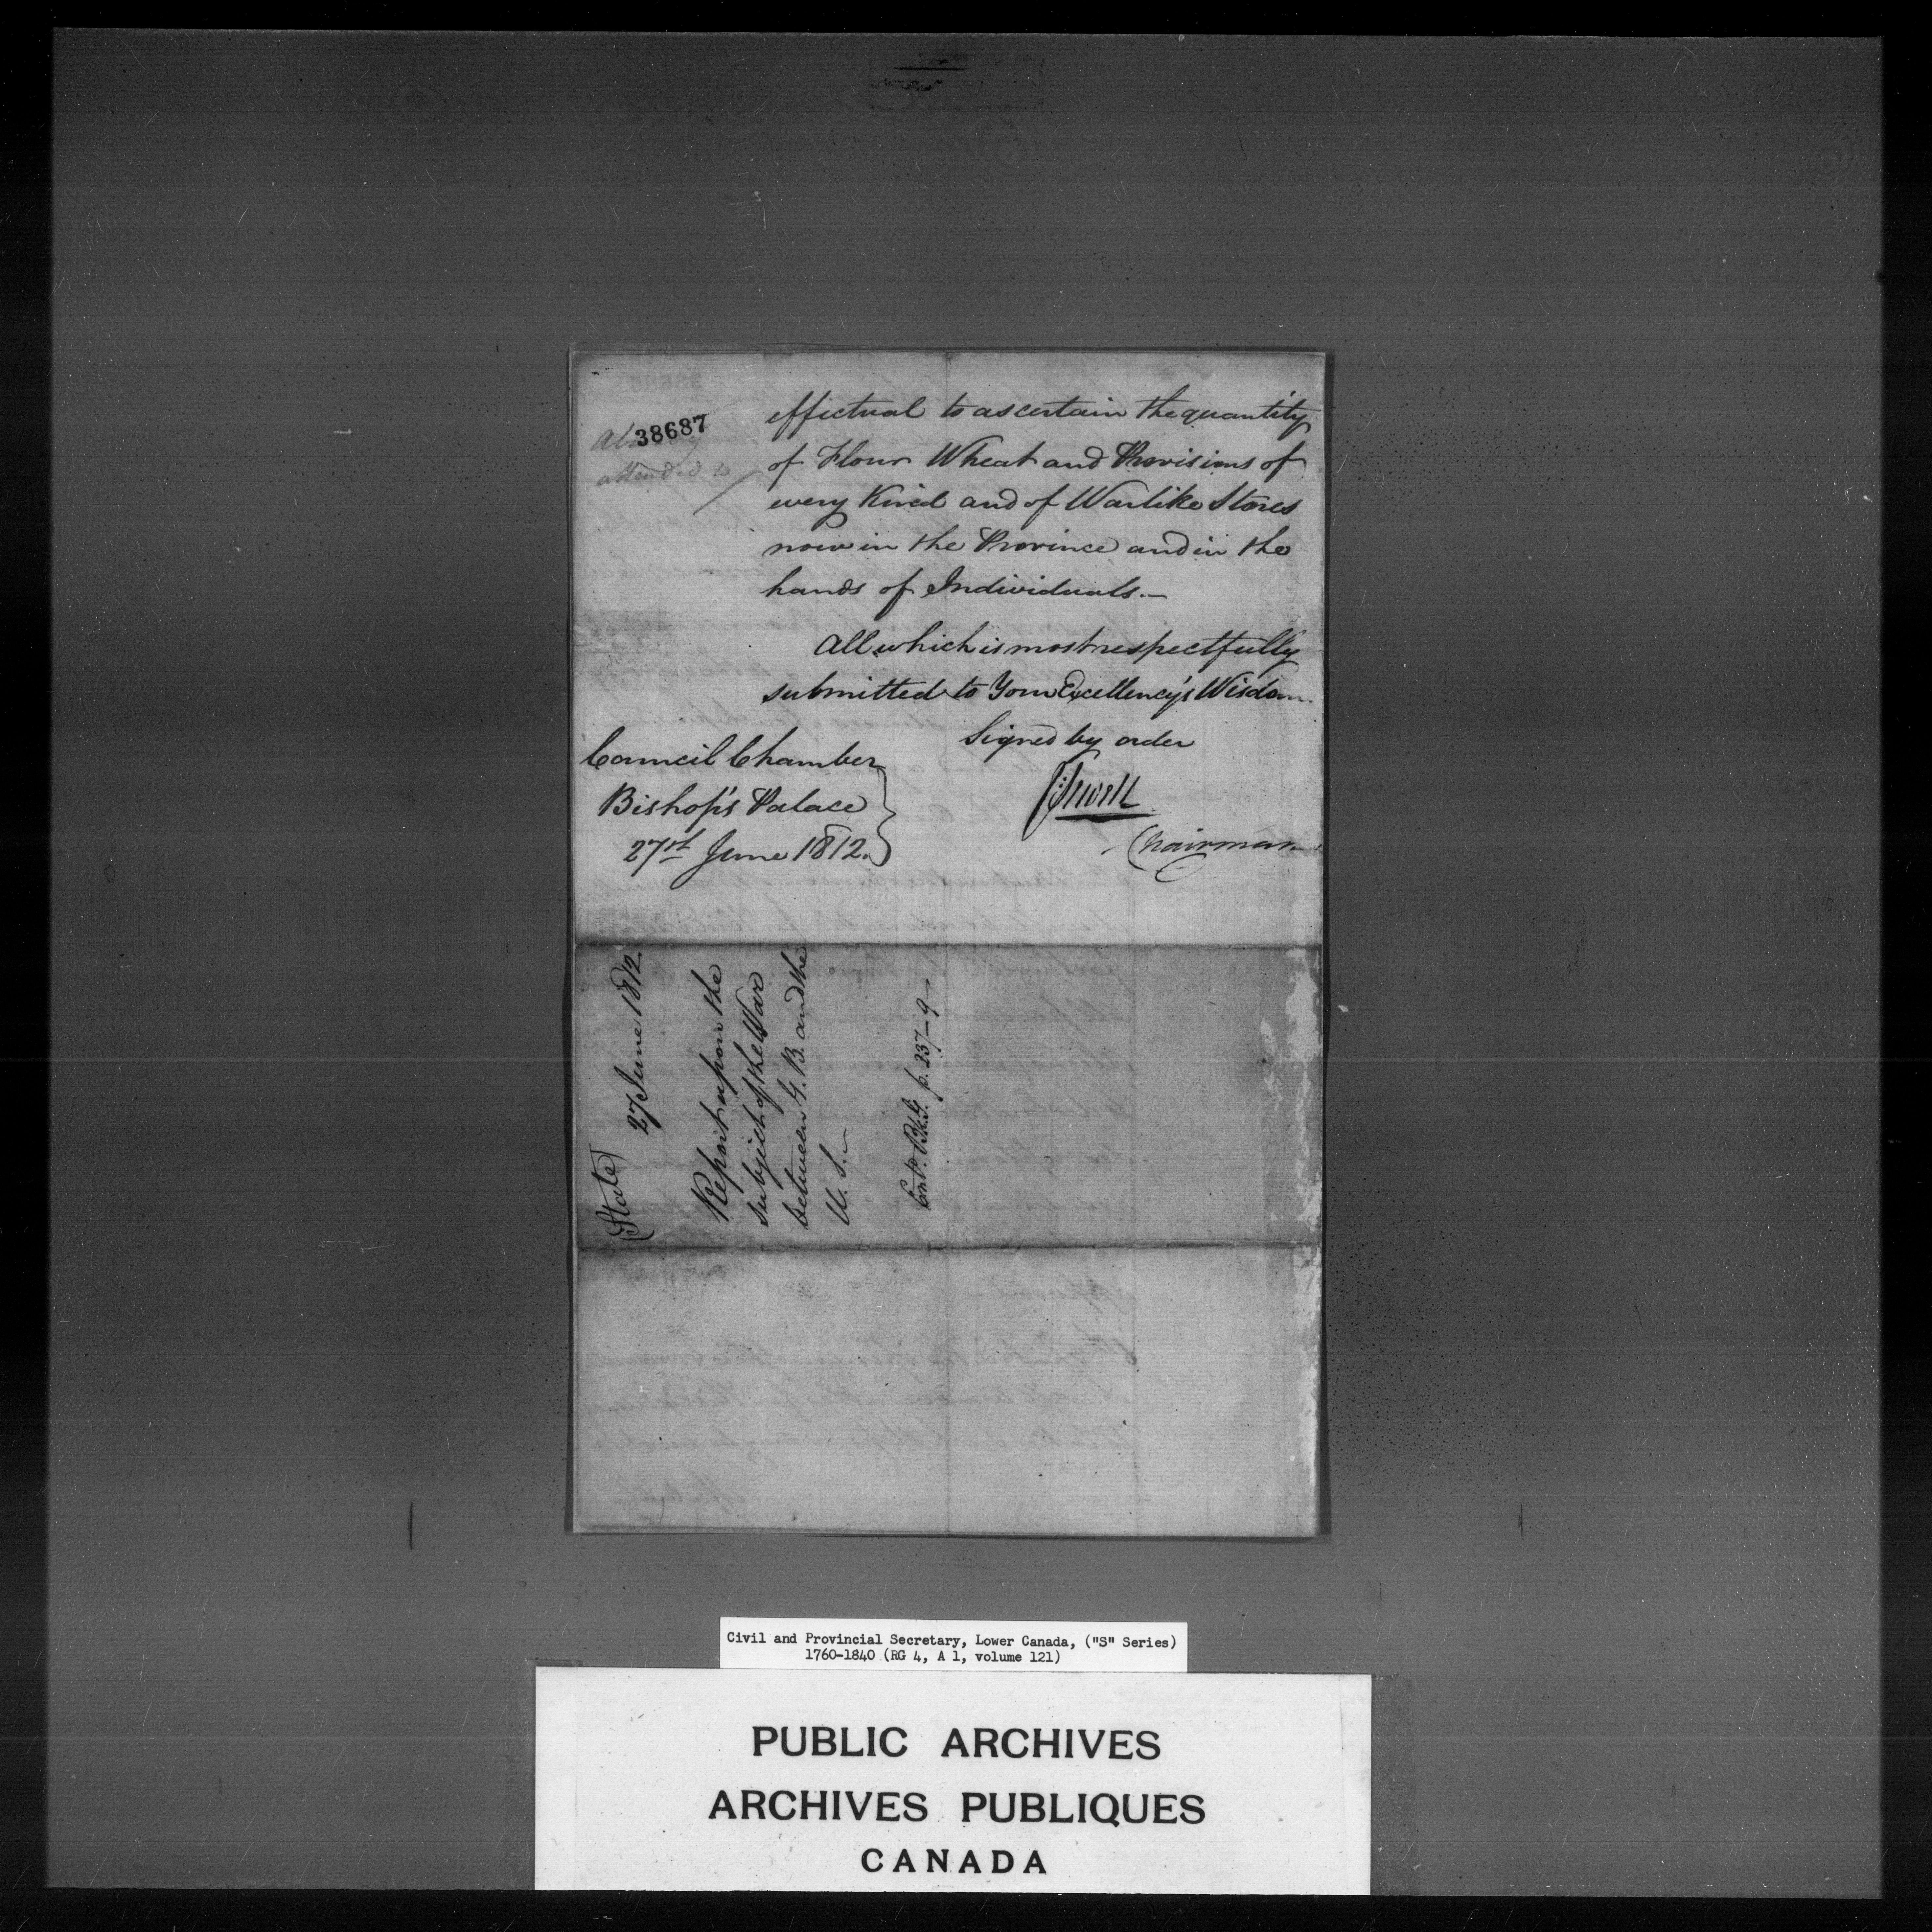 38687
attended to
effectual to ascertain the quantity
of Flour Wheat and Provisions of
every Kind and of Warlike Stores
now in the Province and in the
hands of Individuals.—
All which is most respectfully
submitted to Your Excellency's Wisdom.
Signed by order
Council Chamber
Bishop's Palace
27st June 1812.
JSewell
Chairman
(State)
27 June 1812.
Report upon the
subject of the War
between G. B. and the
U. S.—
Entd. Bk. G. p. 237–9—
Civil and Provincial Secretary, Lower Canada, ("S" Series)
1760-1840 (RG 4, A 1, volume 121)
PUBLIC ARCHIVES
ARCHIVES PUBLIQUES
CANADA